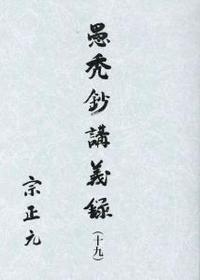 愚禿鈔講義録
（十九）
宗正元